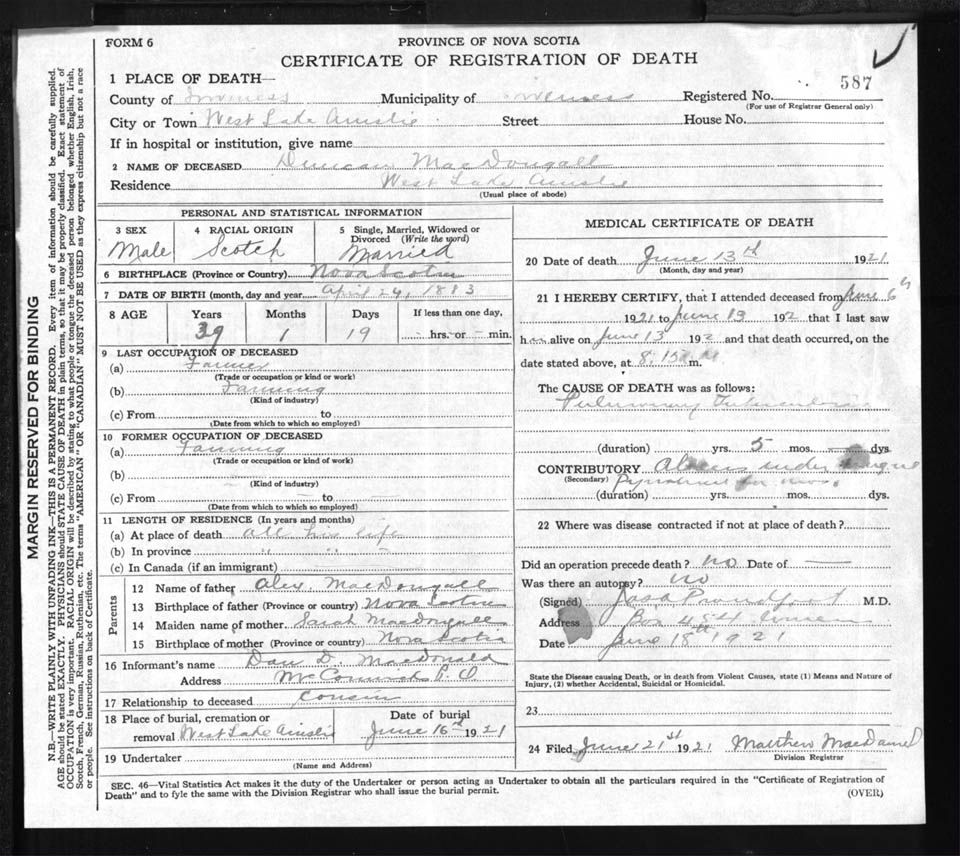 FORM 6
PROVINCE OF NOVA SCOTIA
CERTIFICATE OF REGISTRATION OF DEATH
587
1 PLACE OF DEATH—
County of Inverness Municipality of Inverness Registered No.
(For use of Registrar General only)
City or Town West Lake Ainslie Street House No.
If in hospital or institution, give name
2 NAME OF DECEASED Duncan MacDougall
Residence West Lake Ainslie
(Usual place of abode)
PERSONAL AND STATISTICAL INFORMATION
3 SEX 4 RACIAL ORIGIN 5 Single, Married, Widowed or
Divorced (Write the word)
Male Scotch Married
6 BIRTHPLACE (Province or Country) Nova Scotia
7 DATE OF BIRTH (month, day and year April 24, 1883
8 AGE Years Months Days If less than one day,
39 1 19 hrs. or min.
9 LAST OCCUPATION OF DECEASED
(a) Farmer
(Trade or occupation or kind or work)
(b) Farming
(Kind of industry)
(c) From to
(Date from which to which so employed)
10 FORMER OCCUPATION OF DECEASED
(a) Farming
(Trade or occupation or kind of work)
(b)
(Kind of industry)
(c) From — to —
(Date from which to which so employed)
11 LENGTH OF RESIDENCE (In years and months)
(a) At place of death all his life
(b) In province " " "
(c) In Canada (if an immigrant) —
Parents
12 Name of father Alex. MacDougall
13 Birthplace of father (Province or country) Nova Scotia
14 Maiden name of mother Sarah MacDougall
15 Birthplace of mother (Province or country) Nova Scotia
16 Informant's name Dan D. MacDonald
Address P.O
17 Relationship to deceased cousin
18 Place of burial, cremation or Date of burial
removal West Lake Ainslie June 16th 1921
19 Undertaker
(Name and Address)
MEDICAL CERTIFICATE OF DEATH
20 Date of death June 13th 1921
(Month, day and year)
21 I HEREBY CERTIFY, that I attended deceased from June 6th
1921 to June 13 192 that I last saw
h alive on June 13 192 and that death occurred, on the
date stated above, at 8. m.
The CAUSE OF DEATH was as follows:
Pulmonary Tuberculosis
(duration) yrs. 5 mos. — dys
CONTRIBUTORY under tongue
(Secondary)
(duration) yrs. mos. dys.
22 Where was disease contracted if not at place of death?
Did an operation precede death? no Date of —
Was there an autopsy? no
(Signed) Proudfoot M.D.
Address Box 484 Inverness
Date June 18th 1921
State the Disease causing Death, or in death from Violent Causes, state (1) Means and Nature of
Injury, (2) whether Accidental, Suicidal or Homicidal.
23
24 Filed June 21st 1921 Matthew MacDaniel
Division Registrar
SEC. 46—Vital Statistics Act makes it the duty of the Undertaker or person acting as Undertaker to obtain all the particulars required in the "Certificate of Registration of
Death" and to fyle the same with the Division Registrar who shall issue the burial permit.
(OVER)
MARGIN RESERVED FOR BINDING
N.B.—WRITE PLAINLY WITH UNFADING INK—THIS IS A PERMANENT RECORD. Every item of information should be carefully supplied.
AGE should be stated EXACTLY. PHYSICIANS should STATE CAUSE OF DEATH in plain terms, so that it may be properly classified. Exact statement of
OCCUPATION is very important. RACIAL ORIGIN will be described by stating to what people or tongue the deceased person belonged whether English, Irish,
Scotch, French, German, Russian, Ruthenian, etc. The terms "AMERICAN" OR "CANADIAN" MUST NOT BE USED as they express citizenship but not a race
or people. See instructions on back of Certificate.